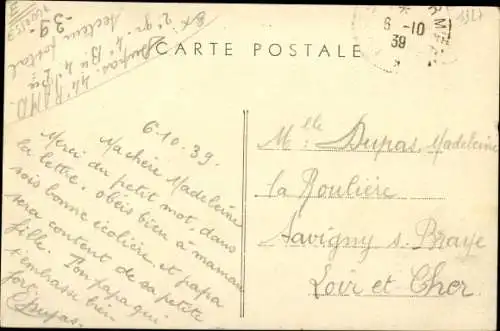 CARTE POSTALE
6-10
39
6.10.39.
Ma chère Madeleine
Merci du petit mot, dans
la lettre, obéis bien à maman
sois bonne écolière et papa
sera content de sa petite
fille. Ton papa qui
t'embrasse bien
fort.
Dupas.
Melle Dupas, Madeleine
la Roulière
Savigny s. Braye
Loir et Cher
Dupas. 44e
2e gr. 4e
secteur postal
-39-